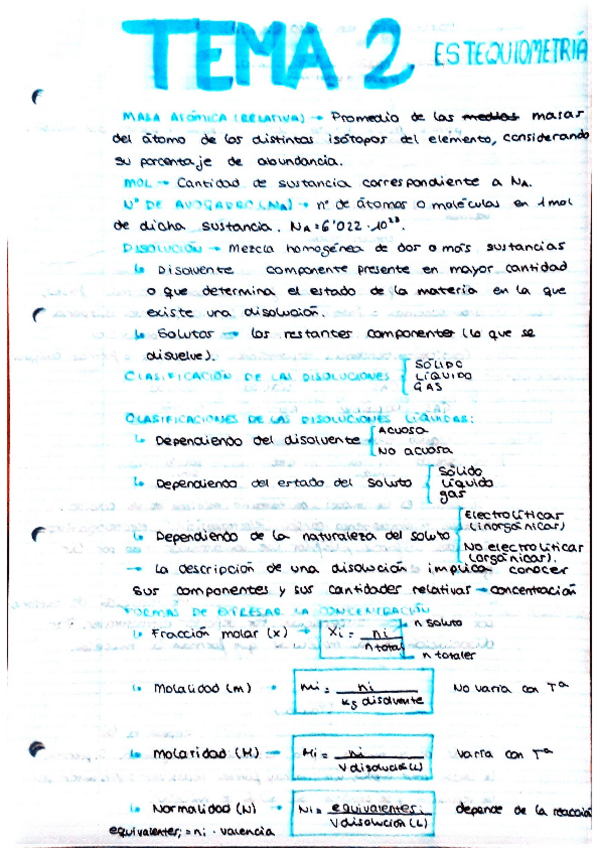 TEMA 2 ESTEQUIOMETRIA
MASA ATÓMICA (RELATIVA) → Promedio de las medias masas
del átomo de los distintos isótopos del elemento, considerando
su porcentaje de abundancia.
MOL → Cantidad de sustancia correspondiente a NA.
Nº DE AVOGADRO (NA) → nº de átomos o moléculas en 1 mol
de dicha sustancia. NA = 6'022 · 10²³.
DISOLUCIÓN → Mezcla homogénea de dos o más sustancias
↳ Disolvente componente presente en mayor cantidad
o que determina el estado de la materia en la que
existe una disolución.
↳ Solutos → los restantes componentes (lo que se
disuelve).
CLASIFICACIÓN DE LAS DISOLUCIONES
SÓLIDO
LÍQUIDO
GAS
CLASIFICACIONES DE LAS DISOLUCIONES LÍQUIDAS:
↳ Dependiendo del disolvente
Acuosa
No acuosa
↳ Dependiendo del estado del soluto
Sólido
Líquido
gas
↳ Dependiendo de la naturaleza del soluto
Electrolíticas
(inorgánicas)
No electrolíticas
(orgánicas).
→ La descripción de una disolución implica conocer
sus componentes y sus cantidades relativas → concentración
FORMAS DE EXPRESAR LA CONCENTRACIÓN
↳ Fracción molar (x) → Xi = ni / n total
n soluto
n totales
↳ Molalidad (m) → mi = ni / kg disolvente No varia con Tª
↳ Molaridad (M) → Mi = ni / V disolución (L) Varía con Tª
↳ Normalidad (N) → Ni = equivalentes i / V disolución (L) depende de la reacción
equivalentes i = ni · valencia